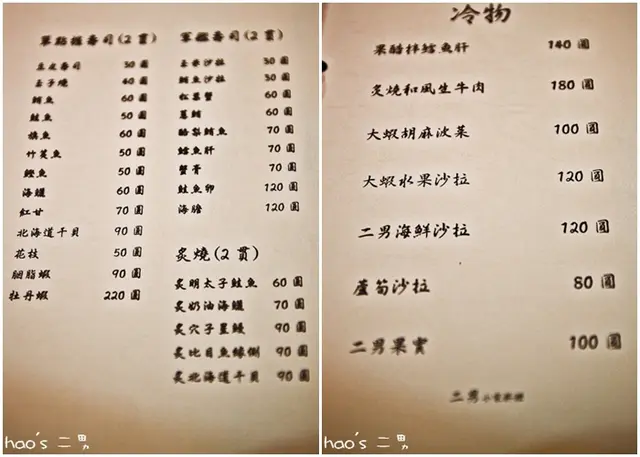 單點握壽司(2 貫)
豆皮壽司 30 圓
玉子燒 40 圓
鮪魚 60 圓
鮭魚 50 圓
旗魚 60 圓
竹莢魚 50 圓
鰹魚 50 圓
海鱺 60 圓
紅甘 70 圓
北海道干貝 90 圓
花枝 50 圓
胭脂蝦 90 圓
牡丹蝦 220 圓
軍艦壽司(2 貫)
玉米沙拉 30 圓
鮪魚沙拉 30 圓
松葉蟹 60 圓
蔥鮪 60 圓
酪梨鮪魚 70 圓
鱈魚肝 70 圓
蟹膏 70 圓
鮭魚卵 120 圓
海膽 120 圓
炙燒(2 貫)
炙明太子鮭魚 60 圓
炙奶油海鱺 70 圓
炙穴子星鰻 90 圓
炙比目魚緣側 90 圓
炙北海道干貝 90 圓
hao's 二男
冷物
果醋拌鱈魚肝 140 圓
炙燒和風生牛肉 180 圓
大蝦胡麻波菜 100 圓
大蝦水果沙拉 120 圓
二男海鮮沙拉 120 圓
蘆筍沙拉 80 圓
二男果實 100 圓
二男
hao's 二男